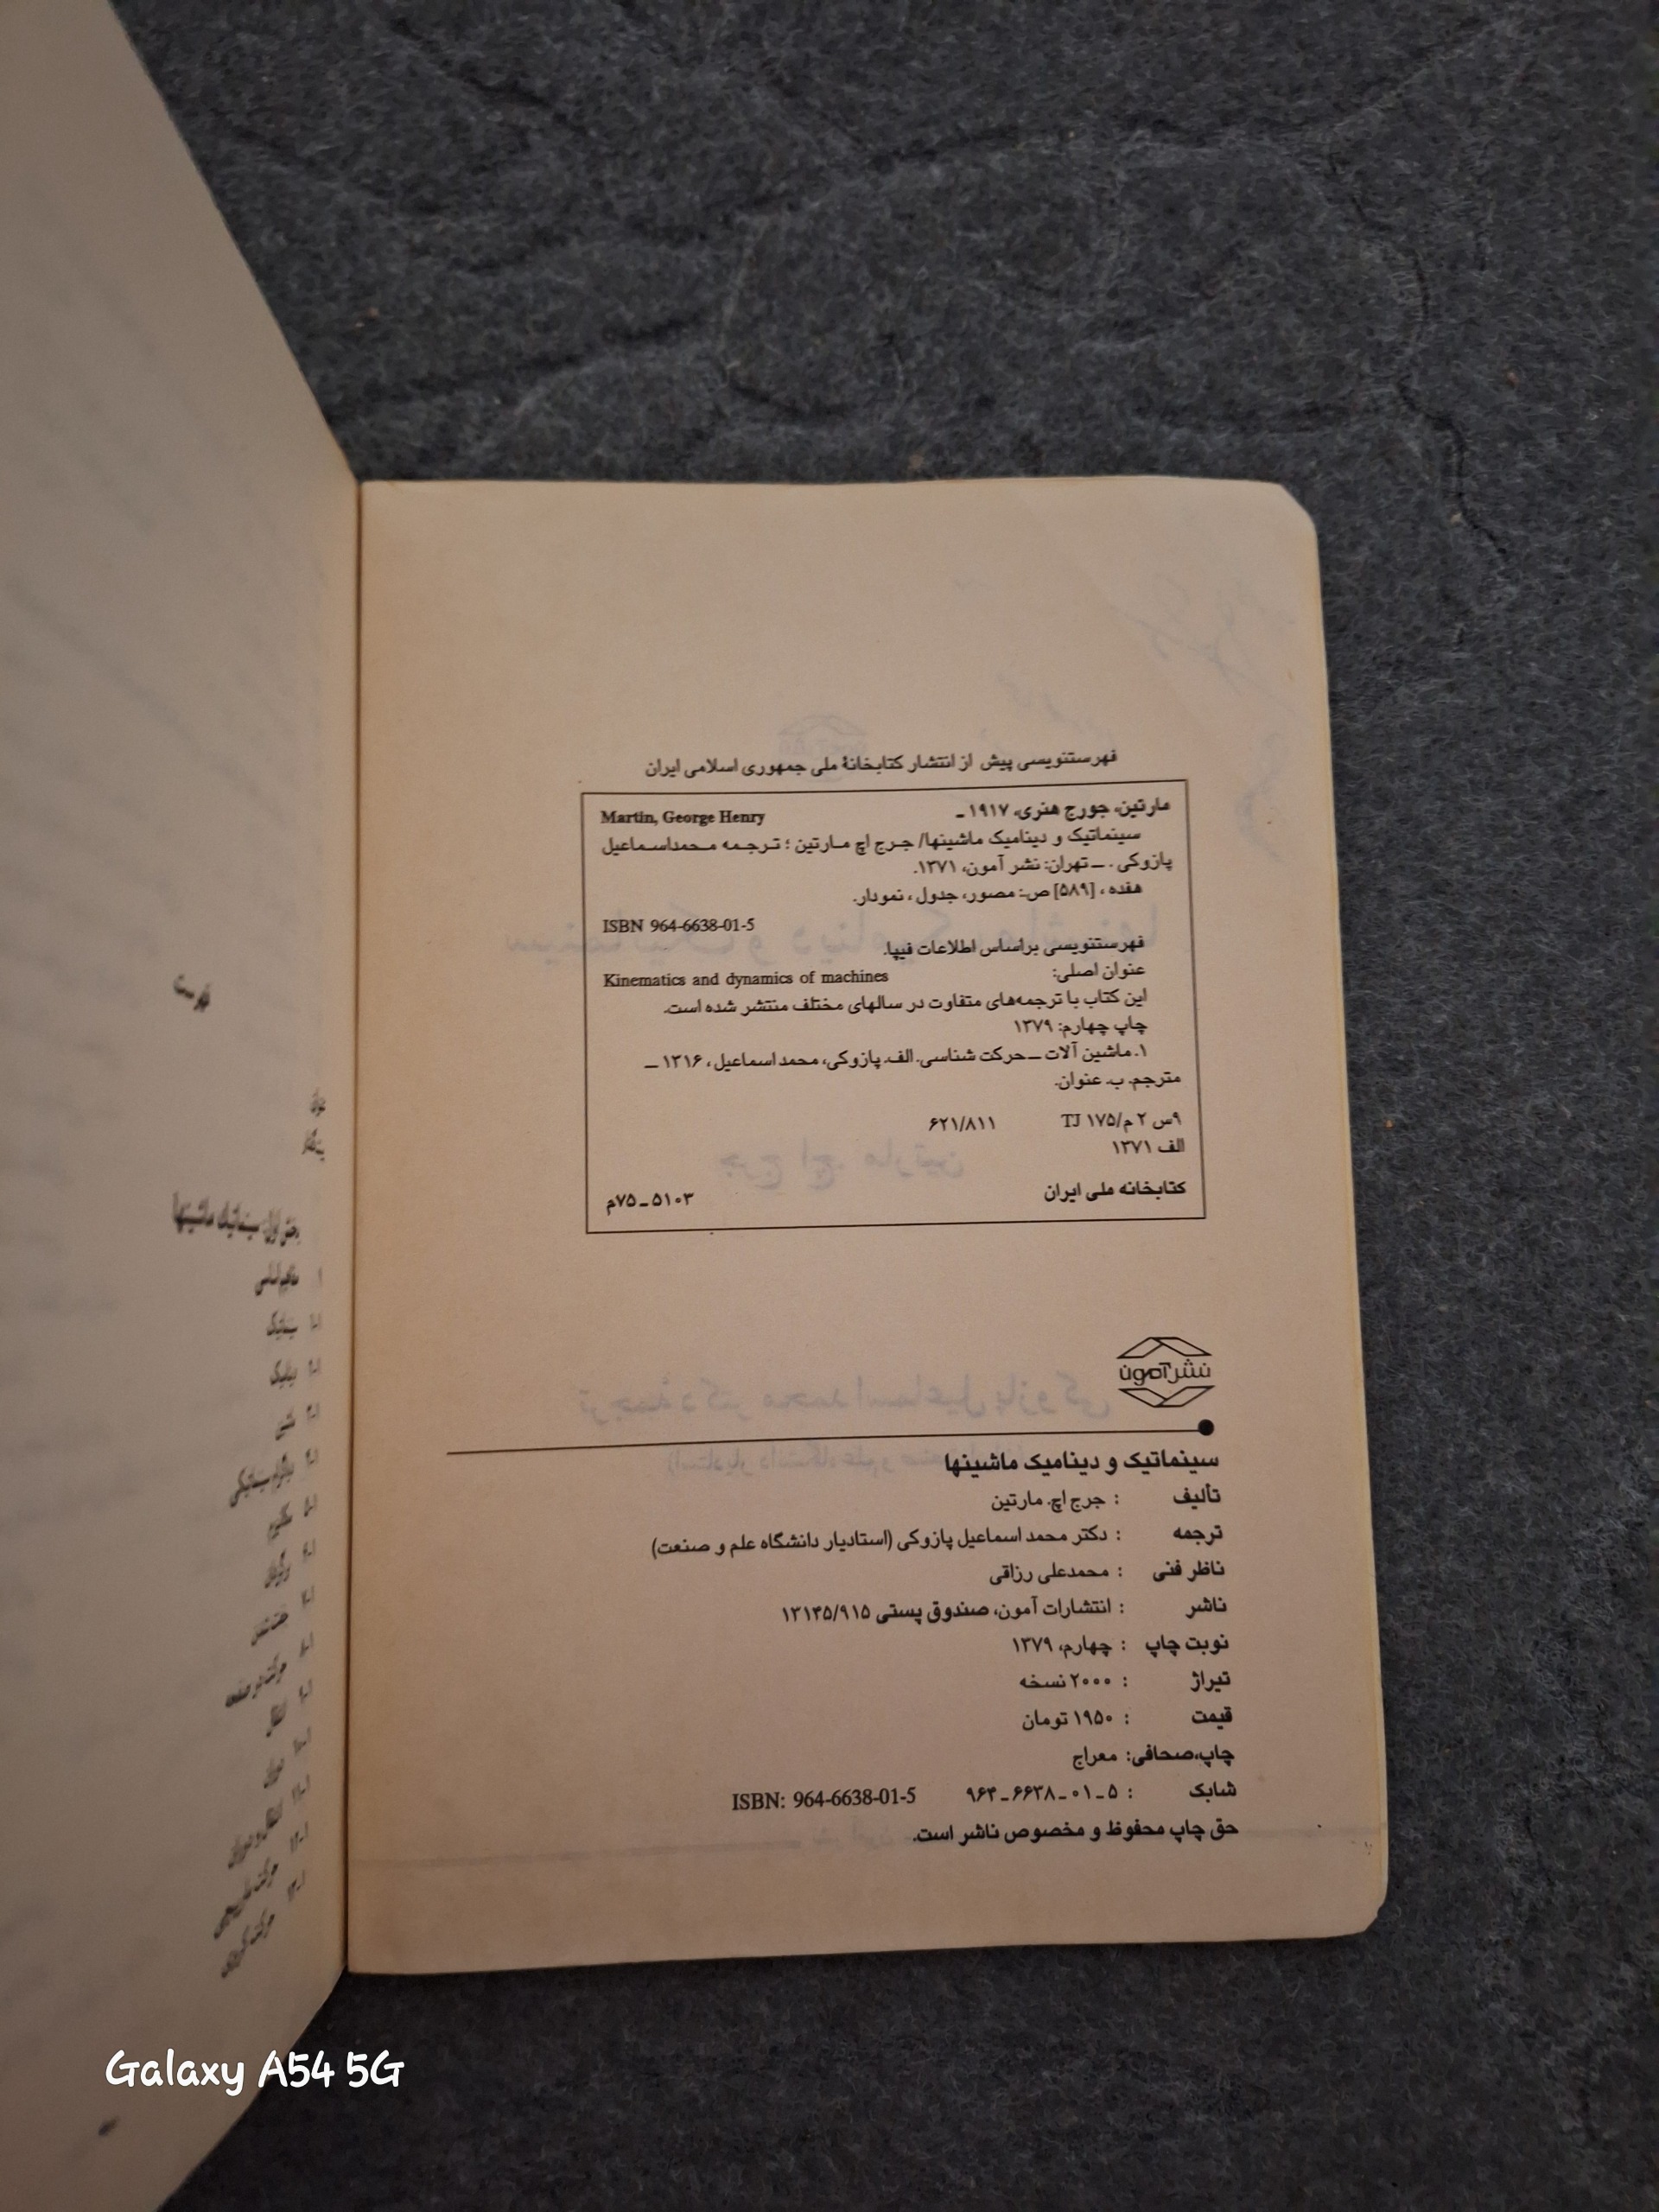 فهرستنویسی پیش از انتشار کتابخانهٔ ملی جمهوری اسلامی ایران
مارتین، جورج هنری، ۱۹۱۷ ـ Martin, George Henry
سینماتیک و دینامیک ماشینها/ جرج اچ مارتین ؛ ترجمه محمداسماعیل
پازوکی . ــ تهران: نشر آمون، ۱۳۷۱.
هفده ، [۵۸۹] ص.: مصور، جدول ، نمودار.
ISBN 964-6638-01-5
فهرستنویسی براساس اطلاعات فیپا.
عنوان اصلی: Kinematics and dynamics of machines
این کتاب با ترجمه‌های متفاوت در سالهای مختلف منتشر شده است.
چاپ چهارم: ۱۳۷۹
۱. ماشین آلات ــ حرکت شناسی. الف. پازوکی، محمد اسماعیل ، ۱۳۱۶ ــ
مترجم. ب. عنوان.
۹س ۲ م/۱۷۵ TJ ۶۲۱/۸۱۱
الف ۱۳۷۱
کتابخانه ملی ایران ۵۱۰۳ ـ ۷۵م
نشر آمون
سینماتیک و دینامیک ماشینها
تألیف : جرج اچ. مارتین
ترجمه : دکتر محمد اسماعیل پازوکی (استادیار دانشگاه علم و صنعت)
ناظر فنی : محمدعلی رزاقی
ناشر : انتشارات آمون، صندوق پستی ۱۳۱۴۵/۹۱۵
نوبت چاپ : چهارم، ۱۳۷۹
تیراژ : ۲۰۰۰ نسخه
قیمت : ۱۹۵۰ تومان
چاپ،صحافی: معراج
شابک : ۵ ـ ۰۱ ـ ۶۶۳۸ ـ ۹۶۴ ISBN: 964-6638-01-5
حق چاپ محفوظ و مخصوص ناشر است.
فهرست
بخش اول: سینماتیک ماشینها
Galaxy A54 5G